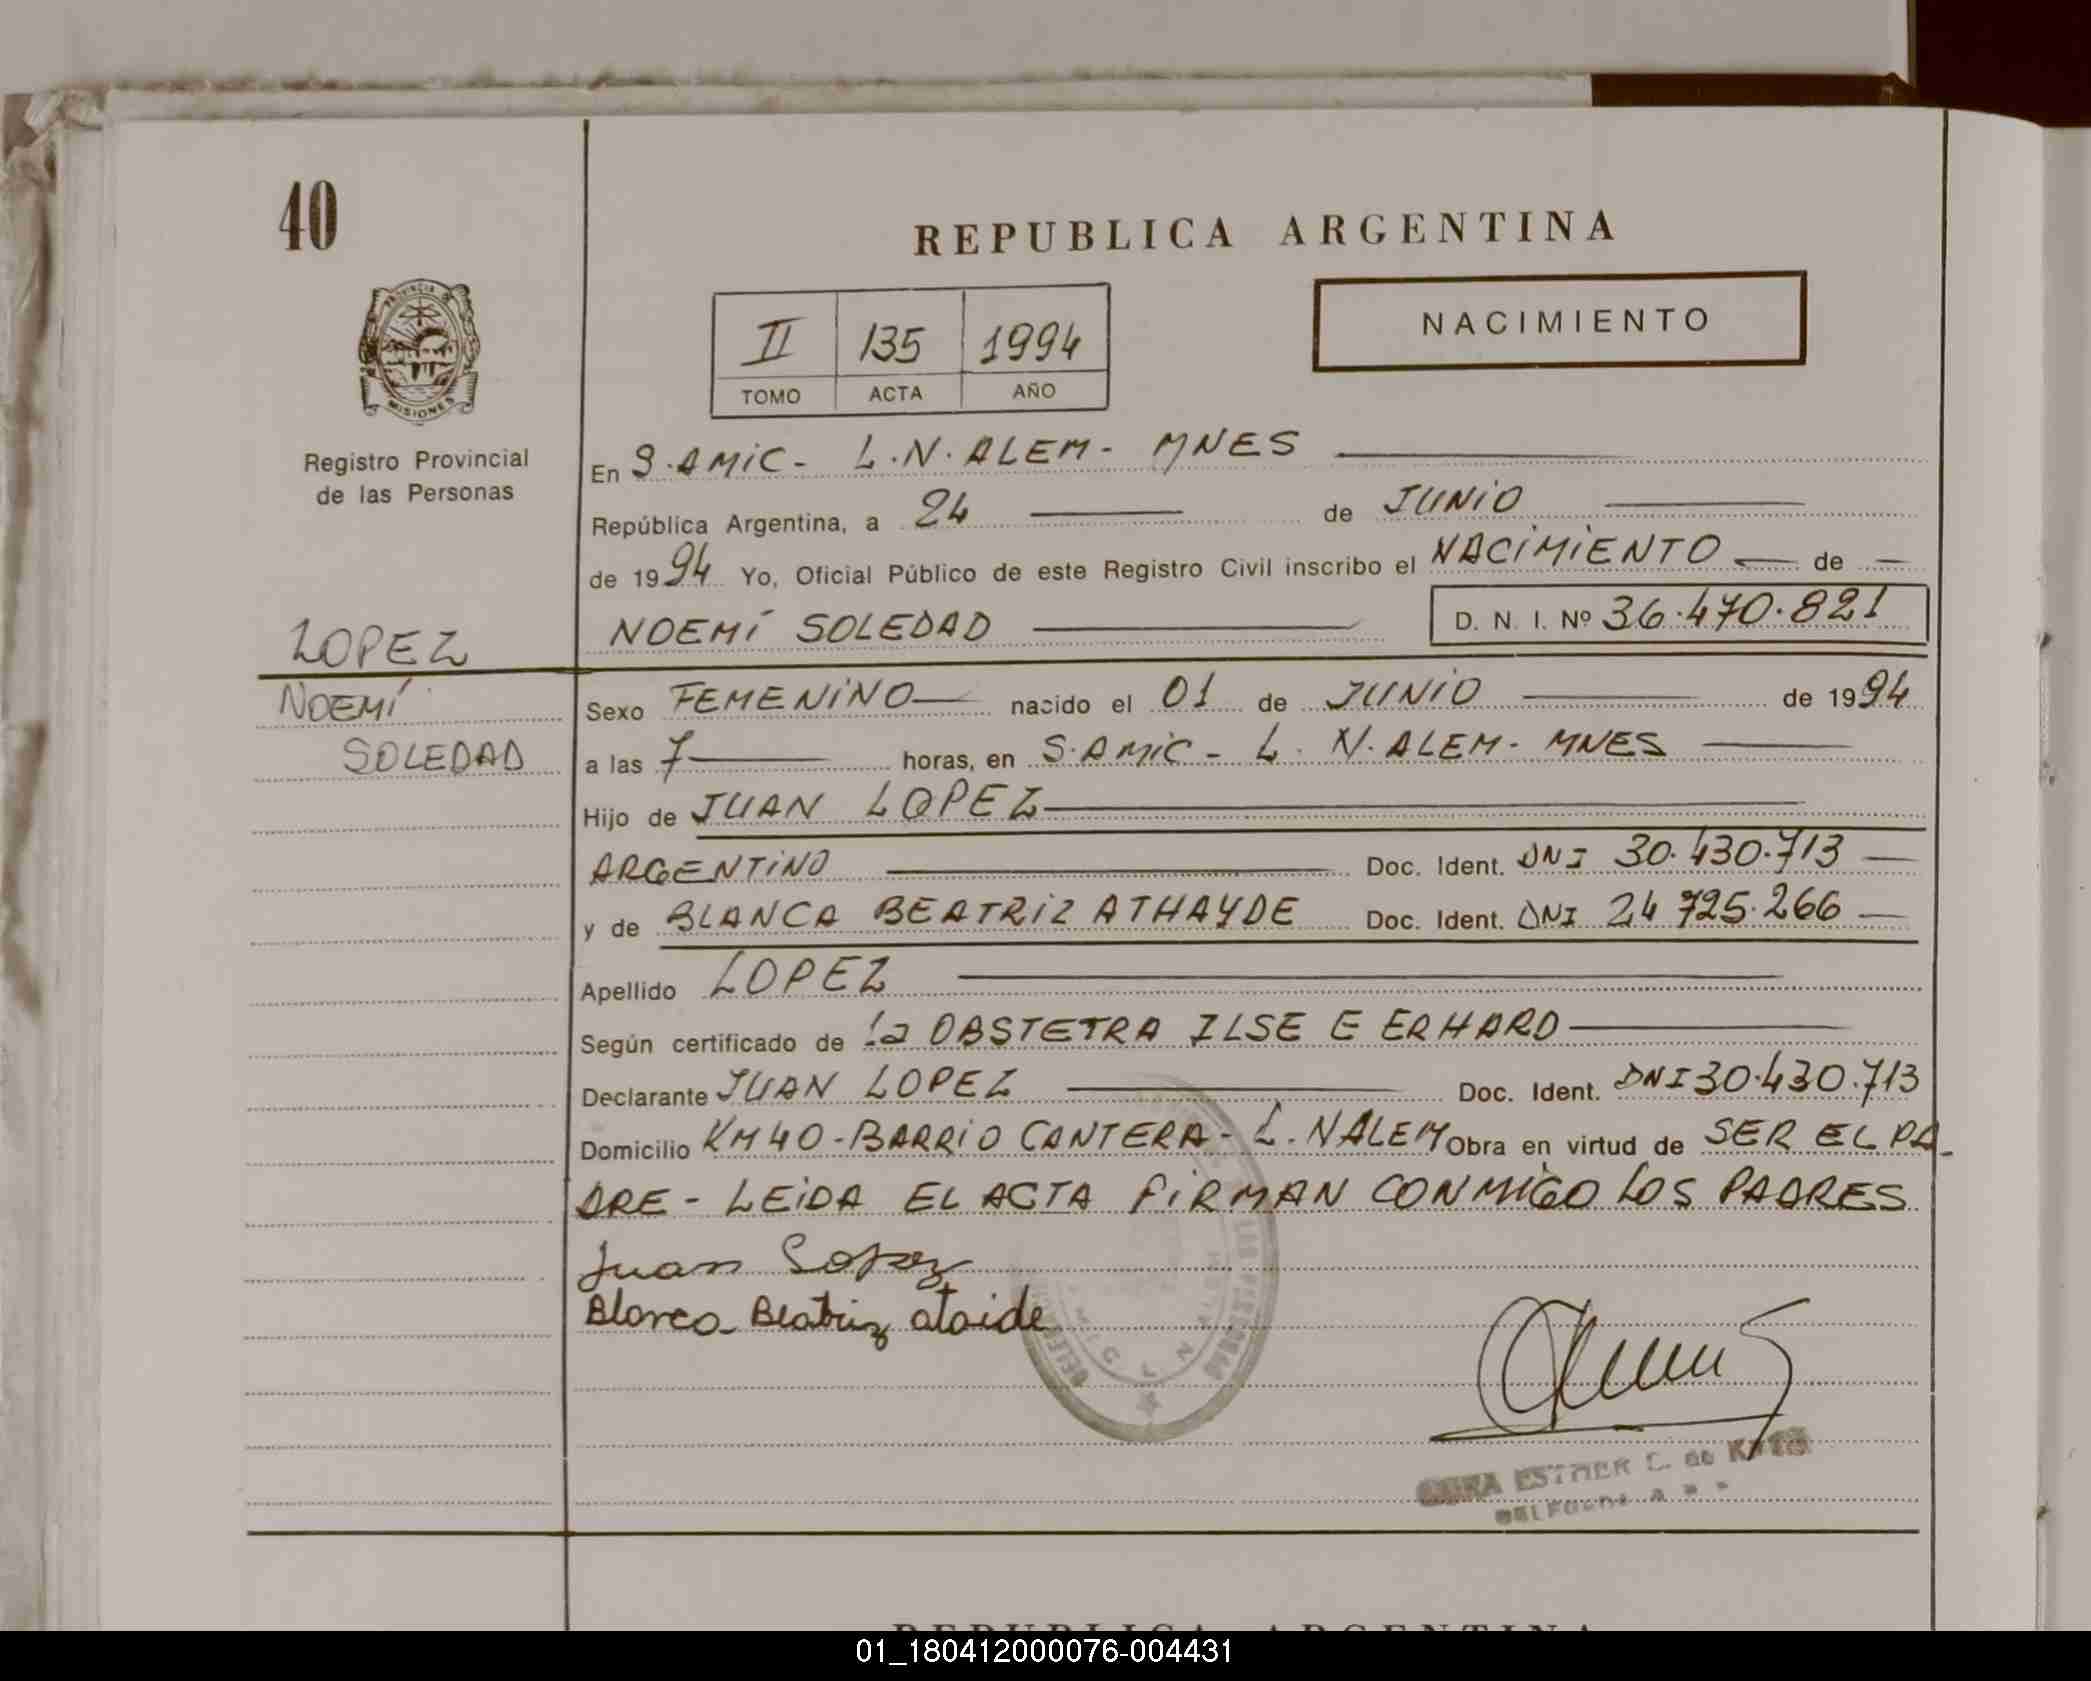 40
REPUBLICA ARGENTINA
II 135 1994
TOMO ACTA AÑO
NACIMIENTO
PROVINCIA DE
MISIONES
Registro Provincial
de las Personas
En S.AMIC - L.N.ALEM - MNES
República Argentina, a 24 de JUNIO
de 1994 Yo, Oficial Público de este Registro Civil inscribo el NACIMIENTO de
NOEMÍ SOLEDAD D. N. I. Nº 36.470.821
LOPEZ
NOEMÍ
SOLEDAD
Sexo FEMENINO nacido el 01 de JUNIO de 1994
a las 7 horas, en S.AMIC - L. N. ALEM - MNES
Hijo de JUAN LOPEZ
ARGENTINO Doc. Ident. DNI 30.430.713
y de BLANCA BEATRIZ ATHAYDE Doc. Ident. DNI 24 725.266
Apellido LOPEZ
Según certificado de la OBSTETRA ILSE E ERHARD
Declarante JUAN LOPEZ Doc. Ident. DNI 30.430.713
Domicilio KM 40 - BARRIO CANTERA - L. N ALEM Obra en virtud de SER EL PA-
DRE - LEIDA EL ACTA FIRMAN CONMIGO LOS PADRES
Juan Lopez
Blanca Beatriz ataide
ESTHER C. de
REPUBLICA ARGENTINA
01_180412000076-004431